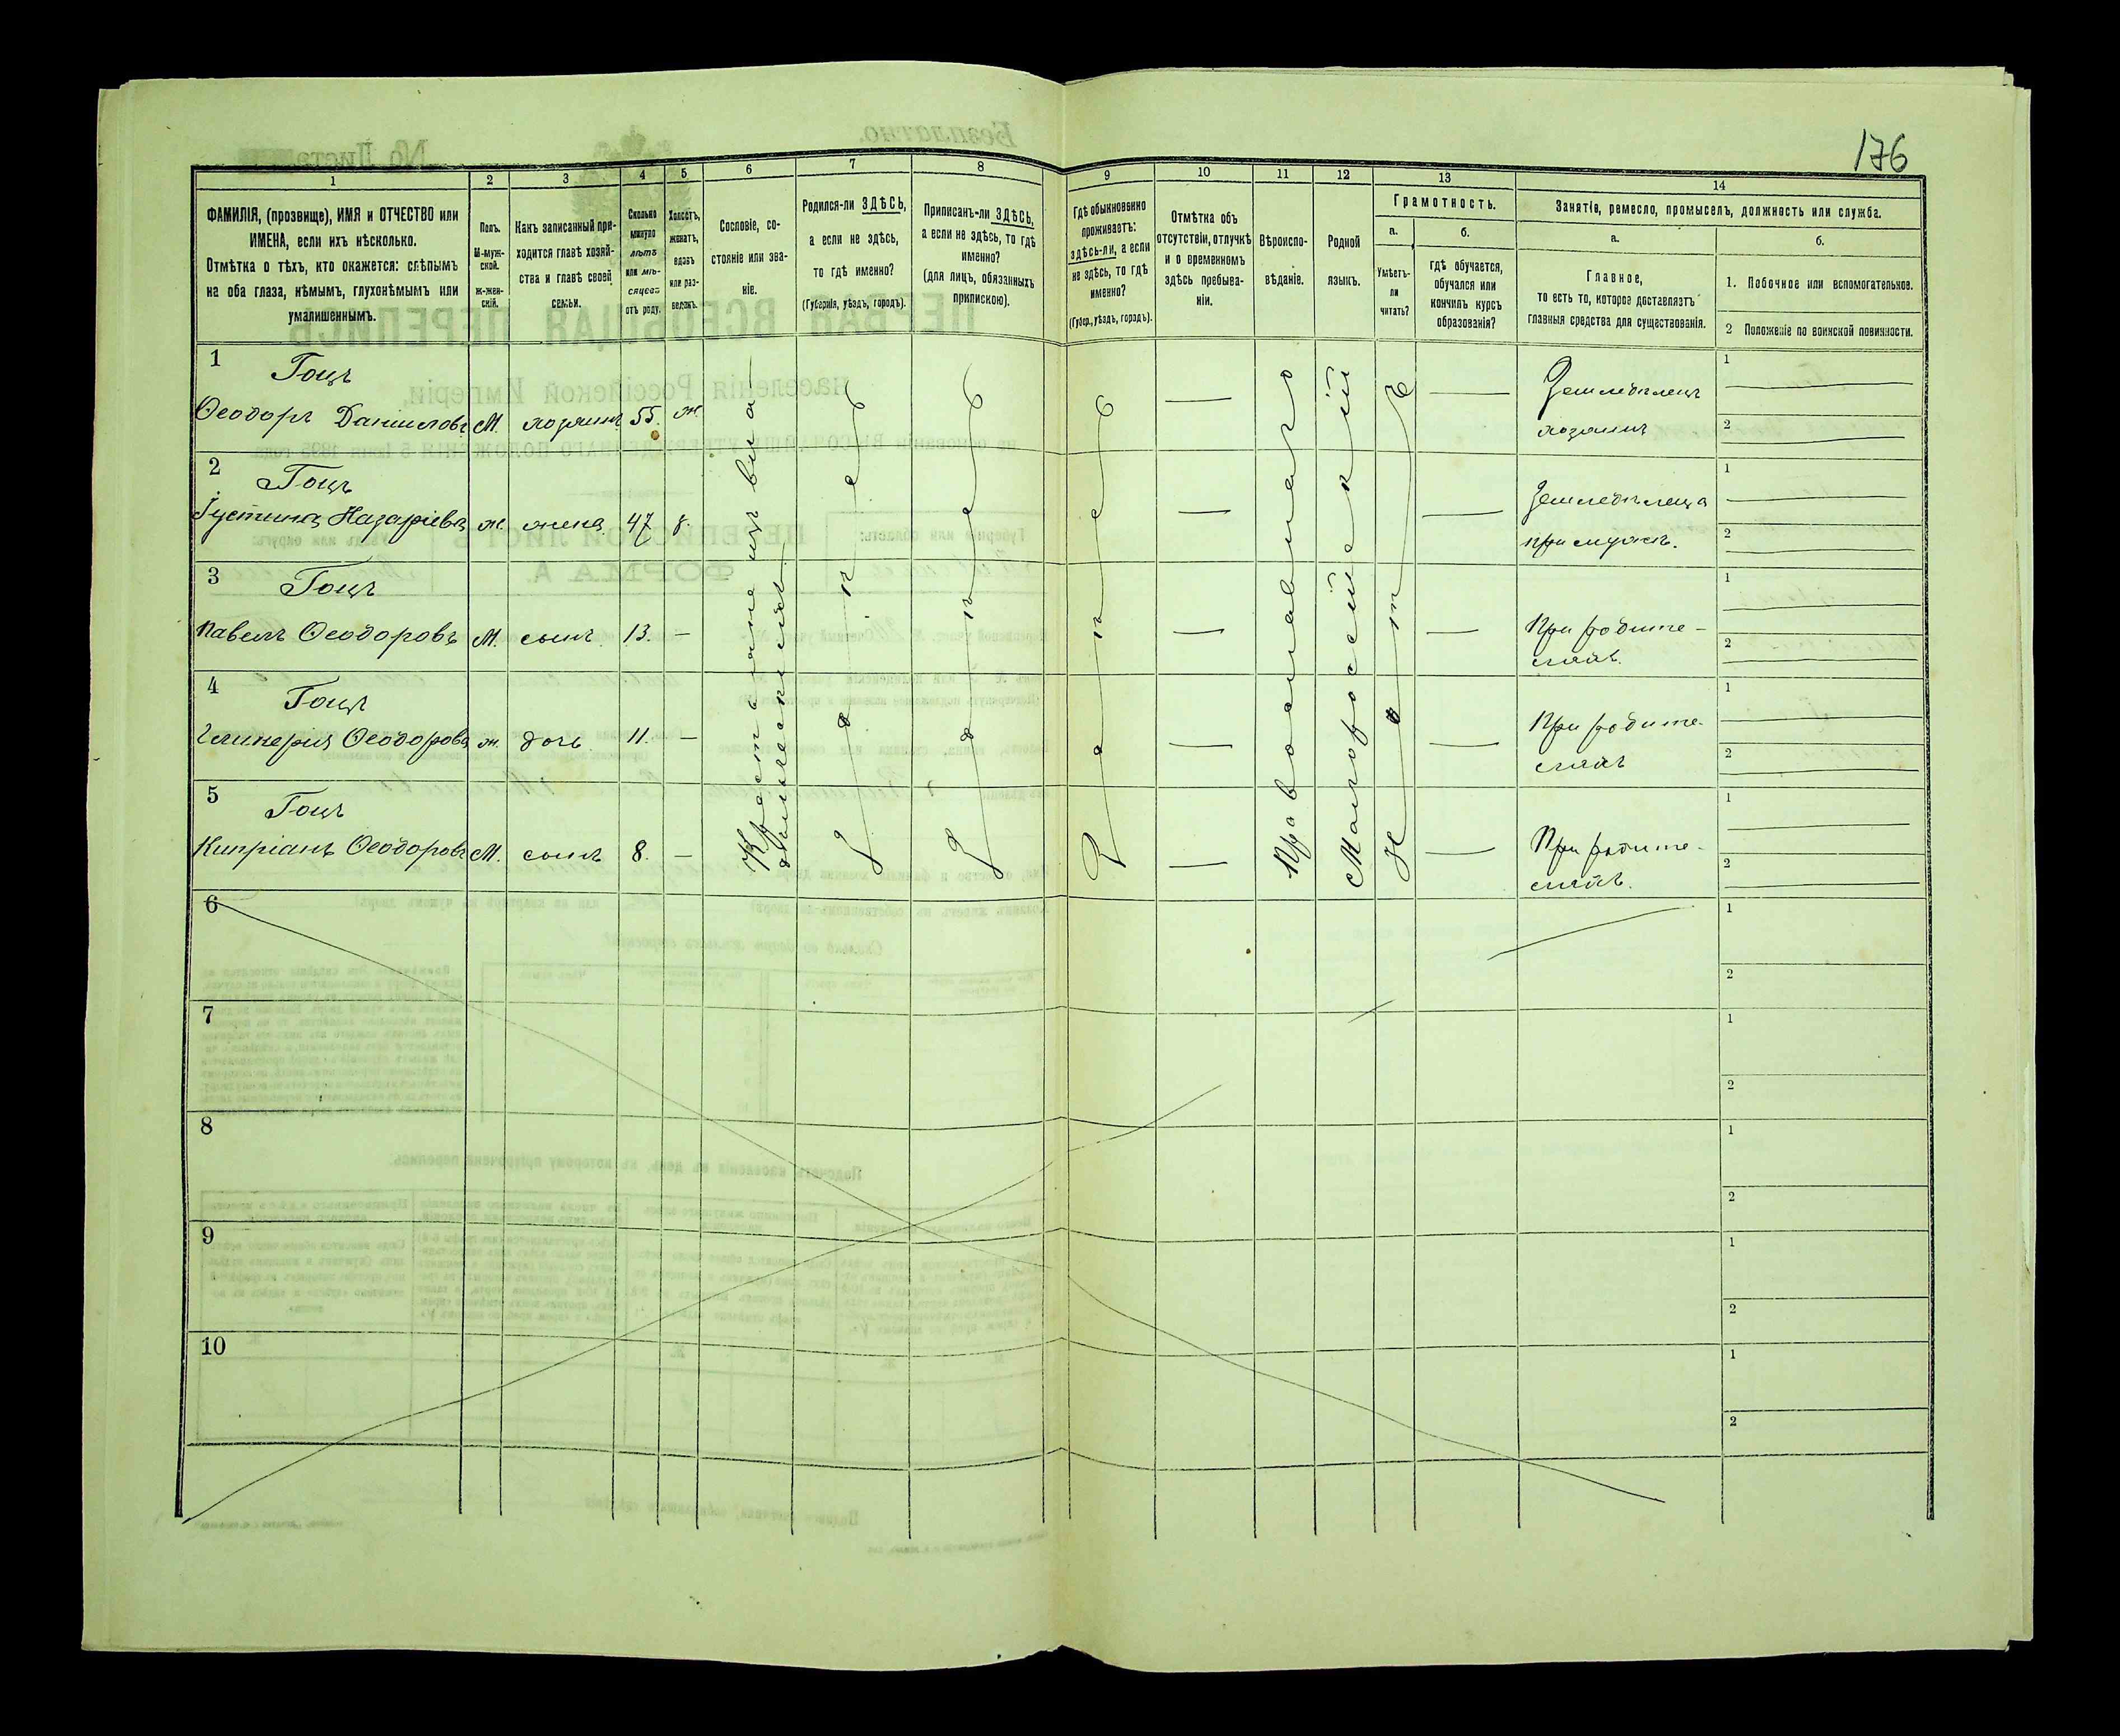 176
1
2
3
4
5
6
7
8
9
10
11
12
13
14
ФАМИЛІЯ, (прозвище), ИМЯ и ОТЧЕСТВО или
ИМЕНА, если ихъ нѣсколько.
Отмѣтка о тѣхъ, кто окажется: слѣпымъ
на оба глаза, нѣмымъ, глухонѣмымъ или
умалишеннымъ.
Полъ.
М-муж-
ской.
ж-жен-
скій.
Какъ записанный при-
ходится главѣ хозяй-
ства и главѣ своей
семьи.
Сколько
минуло
лѣтъ
или мѣ-
сяцевъ
отъ роду.
Холостъ,
женатъ,
вдовъ
или раз-
веденъ.
Сословіе, со-
стояніе или зва-
ніе.
Родился-ли ЗДѢСЬ,
а если не здѣсь,
то гдѣ именно?
(Губернія, уѣздъ, городъ).
Приписанъ-ли ЗДѢСЬ,
а если не здѣсь, то гдѣ
именно?
(для лицъ, обязанныхъ
припискою).
Гдѣ обыкновенно
проживаетъ:
здѣсь-ли, а если
не здѣсь, то гдѣ
именно?
(Губер., уѣздъ, городъ).
Отмѣтка объ
отсутствіи, отлучкѣ
и о временномъ
здѣсь пребыва-
ніи.
Вѣроиспо-
вѣданіе.
Родной
языкъ.
Грамотность.
а.
Умѣетъ-
ли
читать?
б.
гдѣ обучается,
обучался или
кончилъ курсъ
образованія?
Занятіе, ремесло, промыселъ, должность или служба.
а.
Главное,
то есть то, которое доставляетъ
главныя средства для существованія.
б.
1. Побочное или вспомогательное.
2 Положеніе по воинской повинности.
1 Гоцъ
Ѳеодоръ Даниловъ М. хозяинъ 55. ж.
Земледѣлецъ
хозяинъ
1
2
2 Гоцъ
Іустина Назаріева ж. жена 47 з.
Земледѣлица
при мужѣ.
1
2
3 Гоцъ
Павелъ Ѳеодоровъ М. сынъ 13. —
При родите-
ляхъ.
1
2
4 Гоцъ
Гликерія Ѳеодорова ж. дочь 11. —
При родите-
ляхъ
1
2
5 Гоцъ
Кипріанъ Ѳеодоровъ М. сынъ 8. —
При родите-
ляхъ.
1
2
Крестьяне изъ
Здѣсь
Здѣсь
Здѣсь
Православнаго
Малороссійскій
Нѣтъ
6
1
2
7
1
2
8
1
2
9
1
2
10
1
2